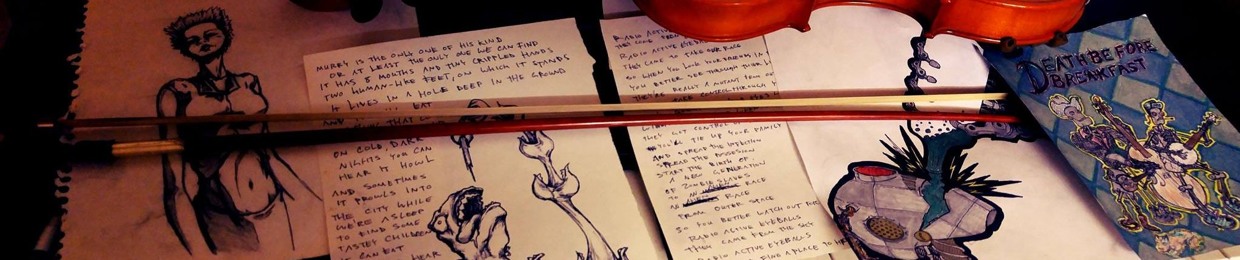 MURRY IS THE ONLY ONE OF HIS KIND
OR AT LEAST THE ONLY ONE WE CAN FIND
IT HAS 8 MOUTHS AND TINY CRIPPLED HANDS
TWO HUMAN-LIKE FEET, ON WHICH IT STANDS
IT LIVES IN A HOLE DEEP IN THE GROUND
EAT
ON COLD, DARK
NIGHTS YOU CAN
HEAR IT HOWL
AND SOMETIMES
IT PROWLS INTO
THE CITY WHILE
WE'RE ASLEEP
TO FIND SOME
TASTEY CHILDREN
IT CAN EAT
HEAR
RADIO ACTIVE EYEBALLS
THEY COME FROM
RADIO ACTIVE EYEBALLS
THEY CAME TO TAKE OUR RACE
SO WHEN YOU LOOK YOUR FRIENDS IN
YOU BETTER SEE THROUGH THEIR
THEY'RE REALLY A MUTANT FROM
CONTROL THROUGH
THEY GOT CONTROL OF
YOU'LL TIE UP YOUR FAMILY
AND SPREAD THE INFECTION
SPREAD THE POSSESION
START THE BIRTH OF
A NEW GENERATION
OF ZOMBIE SLAVES
RACE
FROM OUTER SPACE
SO YOU BETTER WATCH OUT FOR
RADIO ACTIVE EYEBALLS
THEY CAME FROM THE SKY
RADIO ACTIVE EYEBALLS
FIND A PLACE TO
DEATH BEFORE
BREAKFAST